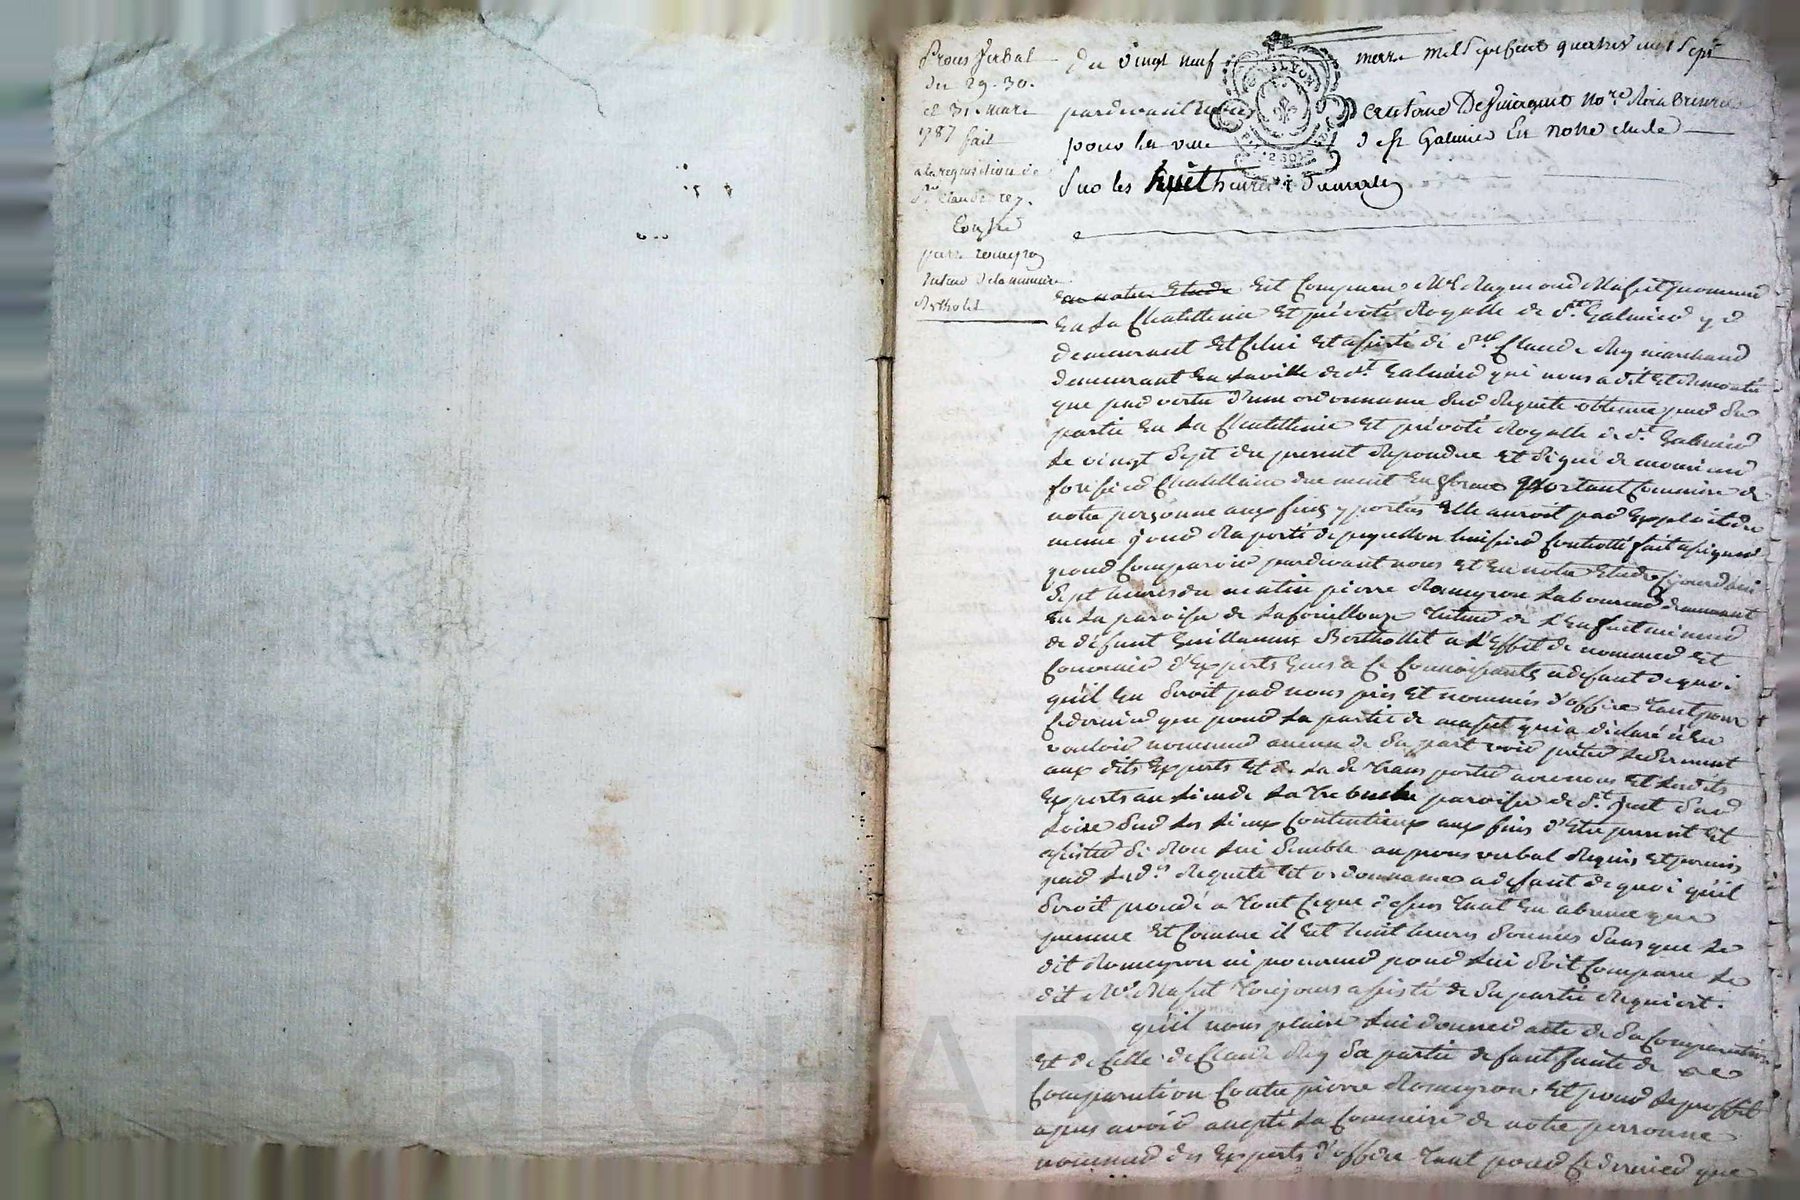 Proces Verbal
du 29. 30.
et 31. mars
1787 fait
a la requisition de
Sr. Claude rey.
Contre
pierre romeyron
tuteur de la mineure
Bertholet
du vingt neuf mars mil sept cent quatre vingt sept
pardevant nous notre Roial
pour la ville de St Galmier En notre etude
Sur les Sept heures du matin
en notre Etude Est Comparu Me. Raymond
En La Chatellenie Et prévoté Royalle de St. Galmier y
demeurant Et Celui Et assisté de Sr. Claude Rey marchand
demeurant En La ville de St. Galmier qui nous a dit Et Remontré
que par vertu d'une ordonnance Sur Requete obtenue par Sa
partie En La Chatellenie Et prévoté Royalle de St. Galmier
Le vingt Sept du present Repondue et Signé de monsieur
Chatellain duement En forme portant Commission de
notre personne aux fins y portés Elle auroit par Exploit du
meme jour Raporté de huissier Controllé fait assigner
pour Comparoir pardevant nous Et En notre Etude Cejourdhui
Sept heures du matin pierre Romeyron Laboureur demeurant
En La paroisse de Lafouillouze Tuteur de L'Enfant mineur
de défunt Guillaume Berthollet a L'Effet de nommer et
Convenir d'Experts Gens a Ce Connoissants a defaut de quoi
qu'il En Seroit par nous pris Et nommés d'office Tant pour
Ce dernier que pour La partie de masset qui a déclaré n'En
vouloir nommer aucun de Sa part voir prêter Le Serment
aux dits Experts Et de La Se Transporter avec nous Et Les dits
Experts au Lieu de La Trebuche paroisse de St. just Sur
Loire Sur Les Lieux Contentieux aux fins d'Etre present Et
assister Si Bon Lui Semble au procès verbal Requis Et permis
par Les d. Requete Et ordonnance a defaut de quoi qu'il
Seroit procédé a Tout Ce que dessus Tant En absence que
presence Et Comme il Est huit heures Sonnées Sans que Le
dit Romeyron ni procureur pour Lui Soit Comparu Le
dit Me Masset Toujours assisté de Sa partie Requiert.
qu'il nous plaise Lui donner acte de Sa Comparution
Et de Celle de Claude Rey Sa partie defaut faute de
Comparution Contre pierre Romeyron, Et pour Le proffit
apres avoir accepté La Commission de notre personne
nommer des Experts d'office Tant pour Ce dernier que